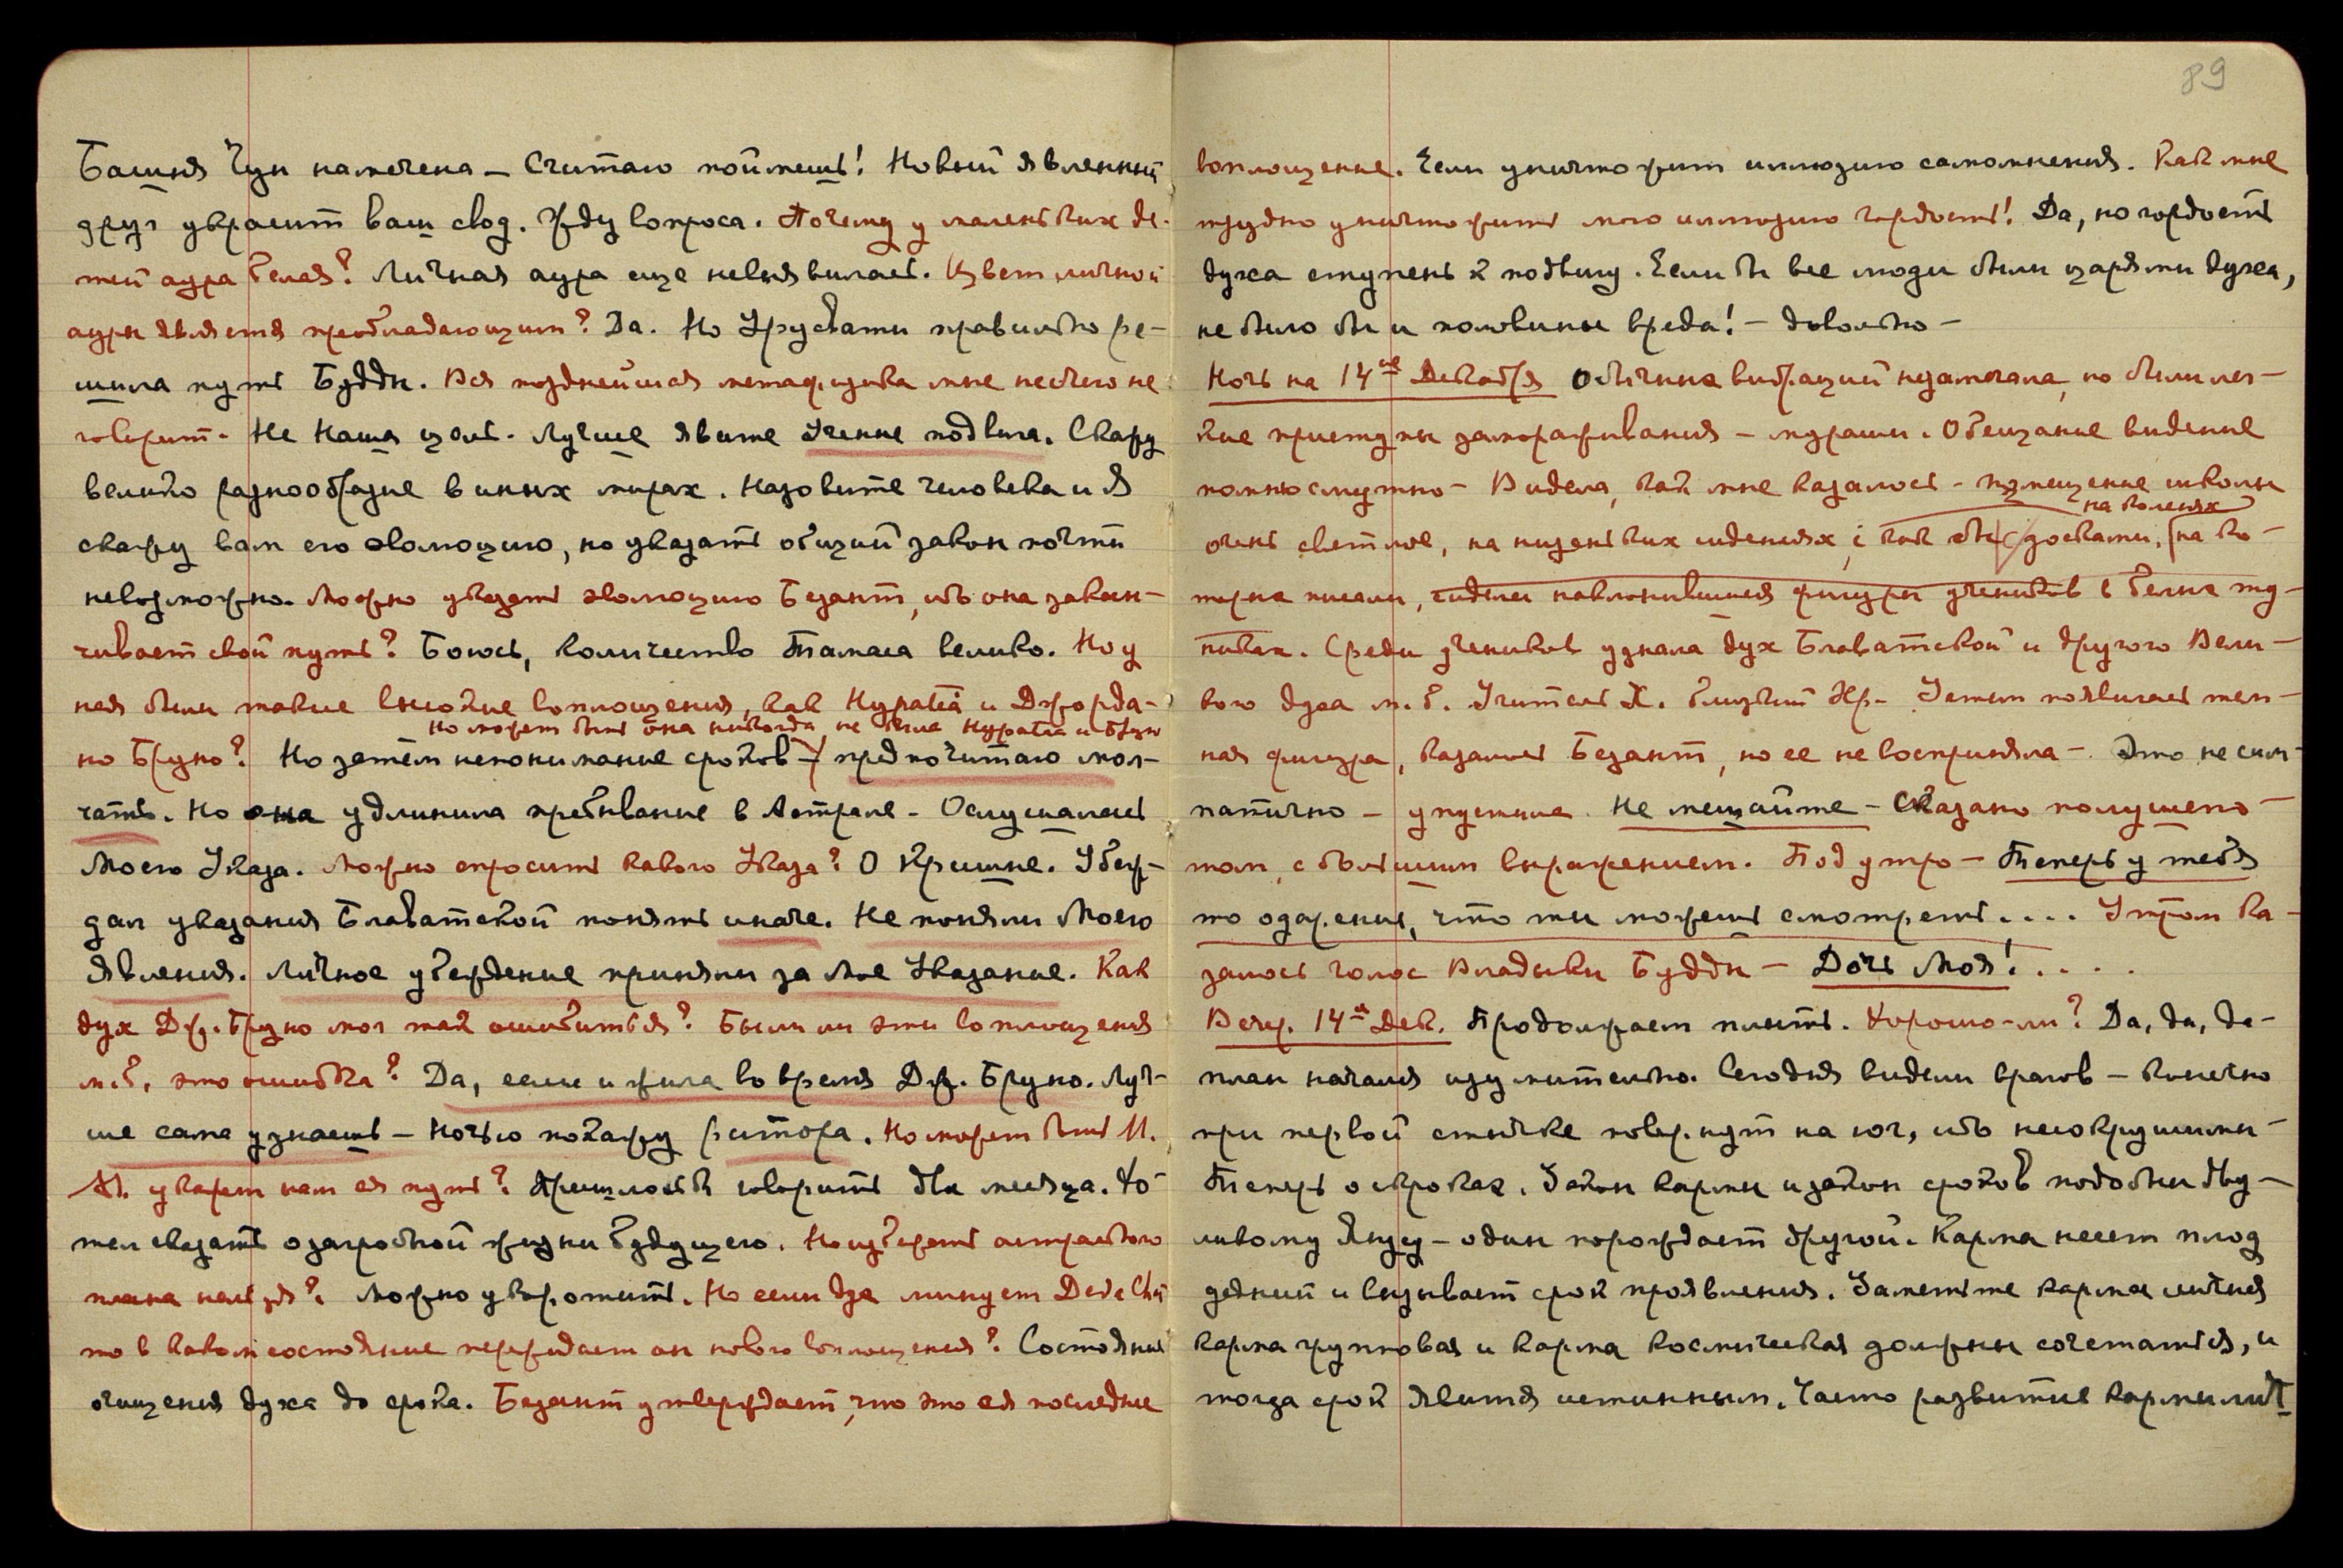 89
Башня Чун намечена – Считаю поймешь! Новый явленный
друг украсит ваш свод. Жду вопроса. Почему у маленьких де-
тей аура белая? Личная аура еще не выявилась. Цвет личной
ауры является преобладающим? Да. Но Урусвати правильно ре-
шила путь Будды. Вся позднейшая метафизика мне ничего не
говорит. Не Наша цель. Лучше явите Учение подвига. Скажу
велико разнообразие в иных мирах. Назовите человека и я
скажу вам его эволюцию, но указать общий закон почти
невозможно. Можно указать эволюцию Безант, ибо она закан-
чивает свой путь? Боюсь, количество Тамаса велико. Но у
нея были такие высокие воплощения, как Hypatia и Джорда-
но Бруно? Но затем непонимание сроков – предпочитаю мол-
но может быть она никогда не была Hypatia и Бруно
чать. Но она удлинила пребывание в Астрале – Ослушалась
Моего Указа. Можно спросить какого Указа? О Кришне. Убеж-
дал указания Блаватской понять иначе. Не поняли Моего
явления. Личное убеждение приняли за Мое Указание. Как
дух Дж. Бруно мог так ошибиться? Были ли эти воплощения
м.б. это ошибка? Да, если и жила во время Дж. Бруно. Луч-
ше сама узнаешь – Ночью покажу ритора. Но может быть М.
М. укажет нам ея путь? Пришлось бы говорить два месяца. Хо-
тел сказать о загробной жизни будущего. Но избежать астрального
плана нельзя? Можно укоротить. Но если дух минует Devachan
то в каком состояние пережидает он нового воплощения? Состояние
очищения духа до срока. Безант утверждает, что это ея последнее
воплощение. Если уничтожит иллюзию самомнения. Как мне
трудно уничтожить мою иллюзию гордости! Да, но гордость
духа ступень к подвигу. Если бы все люди были царями духа,
не было бы и половины вреда! – довольно –
Ночь на 14ое Декабря Обычных вибраций не замечала, но были лег-
кие приступы замораживания – мураши. Обещание видение
помню смутно – Видела, как мне казалось – помещение школы
очень светлое, на низеньких сиденьях, с как бы досками, на ко-
на коленях
торых писали, сидели наклонившияся фигуры учеников в белых ту-
никах. Среди учеников узнала дух Блаватской и другого Вели-
кого духа м.б. Учитель Х. близкий Хр. – Затем появилась тем-
ная фигура, казалось Безант, но ее не восприняла –. Это не сим-
патично – упустила. Не мешайте – Сказано полушепо-
том, с большим выражением. Под утро – Теперь у тебя
то озарение, что ты можешь смотреть.... Утром ка-
залось голос Владыки Будды – Дочь Моя!....
Вечер. 14ое Дек. Продолжаем плыть. Хорошо-ли? Да, да, да –
план начался изумительно. Сегодня видели врагов – конечно
при первой стычке повернут на юг, ибо несокрушимы –
Теперь о сроках. Закон кармы и закон сроков подобны дву-
ликому Янусу – один порождает другой. Карма несет плод
деяний и вызывает срок проявления. Заметьте карма личная
карма групповая и карма космическая должны сочетаться, и
тогда срок явится истинным. Часто развитие кармы лич-